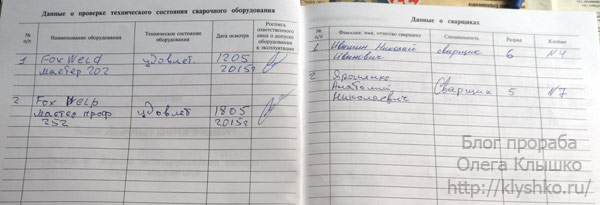 Данные о проверке технического состояния сварочного оборудования
№ п/п
Наименование оборудования
Техническое состояние оборудования
Дата осмотра
Роспись ответственного лица о допуске оборудования к эксплуатации
1 Fox Weld удовлет. 1205
мастер 202 2015г
2 Fox Welp
мастер проф удовлет 1805
252 2015г
Данные о сварщиках
№ п/п
Фамилия, имя, отчество сварщика
Специальность
Разряд
Клеймо
1 Ивашин Николай сварщик 6 К4
Иванович
2 Ярошенко
Анатолий Сварщик 5 №7
Николаевич
Блог прораба
Олега Клышко
http://klyshko.ru/